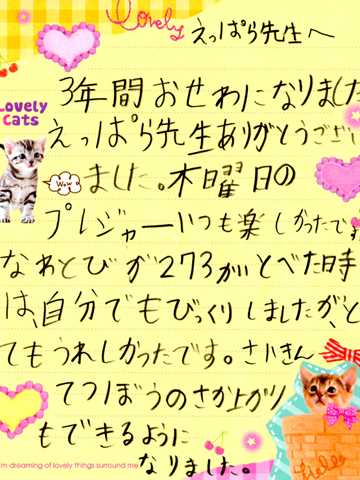 Lovely
えっぱら先生へ
3年間おせわになりました
Lovely
Cats
えっぱら先生ありがとうござい
Wow
ました。木曜日の
プレジャーいつも楽しかったです
なわとびが273かいとべた時
は、自分でもびっくりしましたが、と
てもうれしかったです。さいきん
てつぼうのさか上がり
もできるように
なりました。
I'm dreaming of lovely things surround me.
Hello